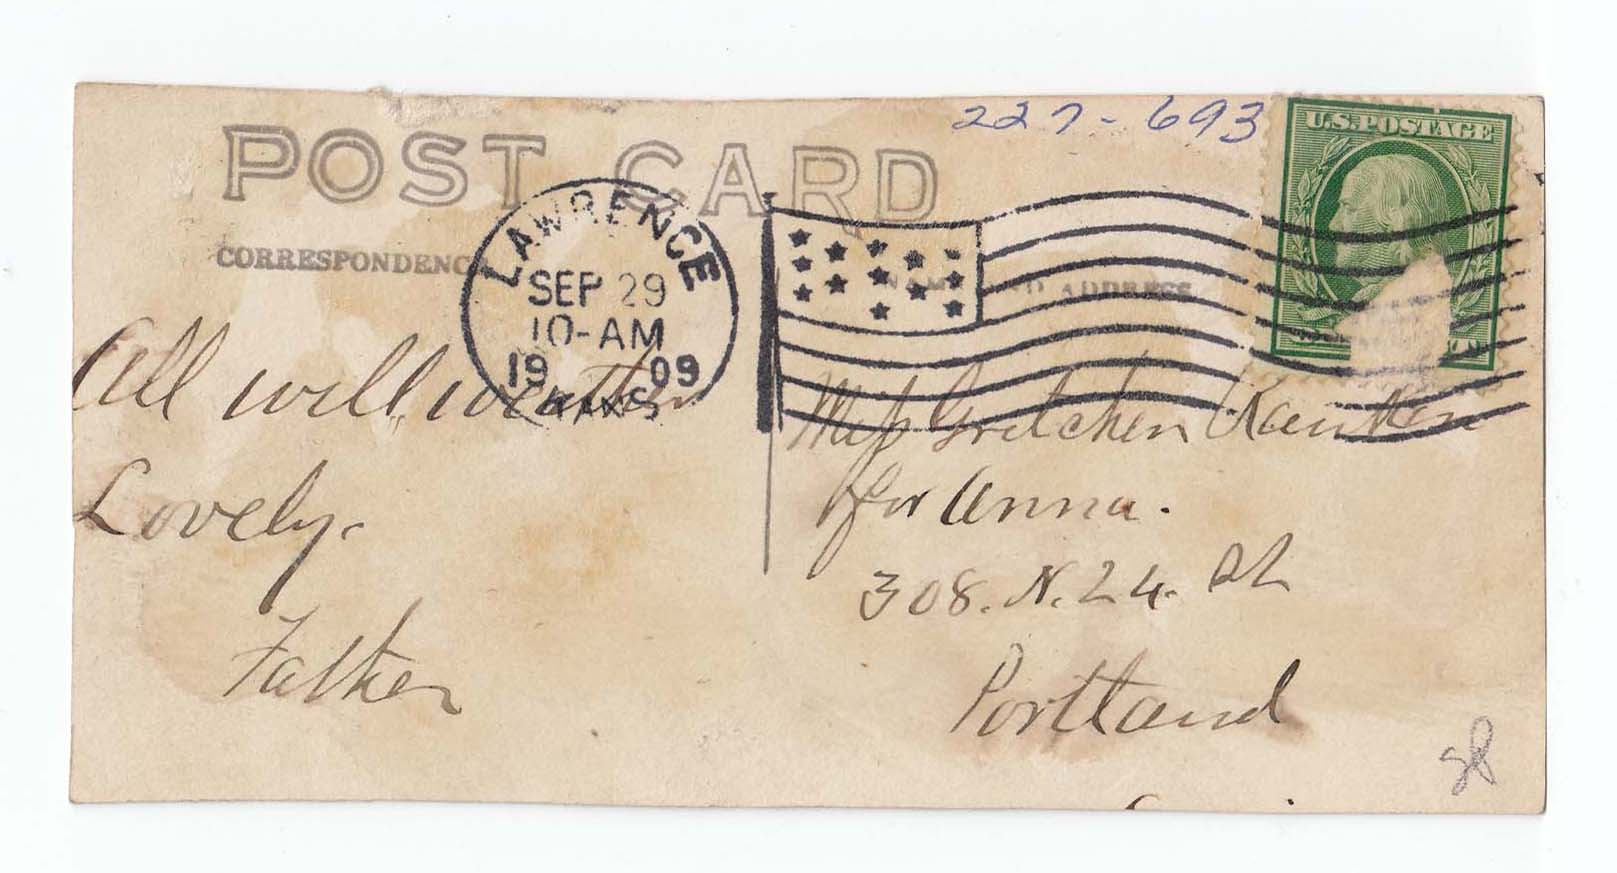 POST CARD
227-693
U.S. POSTAGE
CORRESPONDENC
NAME AND ADDRESS
LAWRENCE
SEP 29
10-AM
1909
KANS
All well weather
Lovely.
Father
Miss Gretchen
for Anna.
308. N. 24. St
Portland